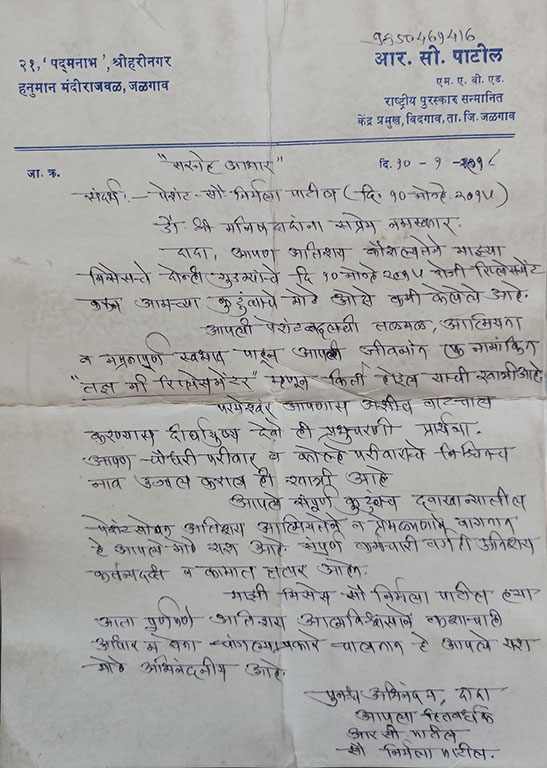 9850469416
२१, 'पद्मनाभ', श्रीहरीनगर
हनुमान मंदीराजवळ, जळगाव
आर. सी. पाटील
एम. ए. बी. एड.
राष्ट्रीय पुरस्कार सन्मानित
केंद्र प्रमुख, विदगाव, ता. जि. जळगाव
जा. क्र.
"सस्नेह आभार"
दि. १०-१-२०१८
संदर्भ :- पेशंट- सौ निर्मला पाटील (दि. १० नोव्हे. २०१५)
डॉ. श्री मनिषदादांना सप्रेम नमस्कार.
दादा, आपण अतिशय कौशल्यतेने माझ्या
मिसेसचे दोन्ही गुडघ्यांचे दि १० नोव्हे २०१५ रोजी रिप्लेसमेंट
करून आमच्या कुटुंबाचे मोठे ओझे कमी केलेले आहे.
आपली पेशंटबद्दलची तळमळ, आत्मियता
व नम्रतापूर्ण स्वभाव पाहून आपली जीवनात एक नामांकित
"तज्ञ नी रिप्लेसमेंटर" म्हणून किर्ती होईल याची खात्री आहे.
परमेश्वर आपणास अशीच वाटचाल
करण्यास दीर्घायुष्य देवो ही प्रभुचरणी प्रार्थना.
आपण चौधरी परीवार व कोल्हे परीवाराचे निश्चितच
नाव उज्वल कराल ही खात्री आहे
आपले संपूर्ण कुटुंब दवाखान्यातील
पेशंटसोबत अतिशय आत्मियतेने व प्रेमळपणाने वागतात
हे आपले मोठे यश आहे. संपूर्ण कर्मचारी वर्ग ही अतिशय
कर्तव्यदक्ष व कामात तत्पर आहेत.
माझी मिसेस सौ निर्मला पाटील ह्या
आता पूर्णपणे अतिशय आत्मविश्वासाने कशाचाही
आधार न घेता चांगल्याप्रकारे चालतात हे आपले यश
मोठे अभिनंदनीय आहे.
पुनश्च अभिनंदन, दादा
आपला हितवर्धक
आर सी पाटील
सौ निर्मला पाटील.